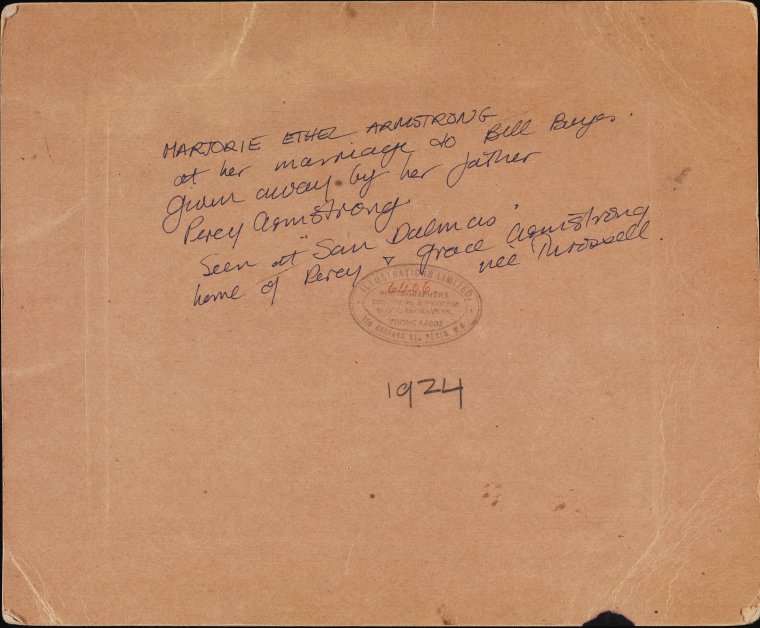 MARJORIE ETHEL ARMSTRONG
at her marriage to Bill Burges.
given away by her father
Percy Armstrong
Seen at "San Dalmas"
home of Percy & Grace Armstrong
nee Throssell.
ILLUSTRATIONS LIMITED
6406
PHOTOGRAPHERS,
DESIGNERS & PROCESS
BLOCK ENGRAVERS.
PHONE A4602
ST. PERTH, W.A.
1924